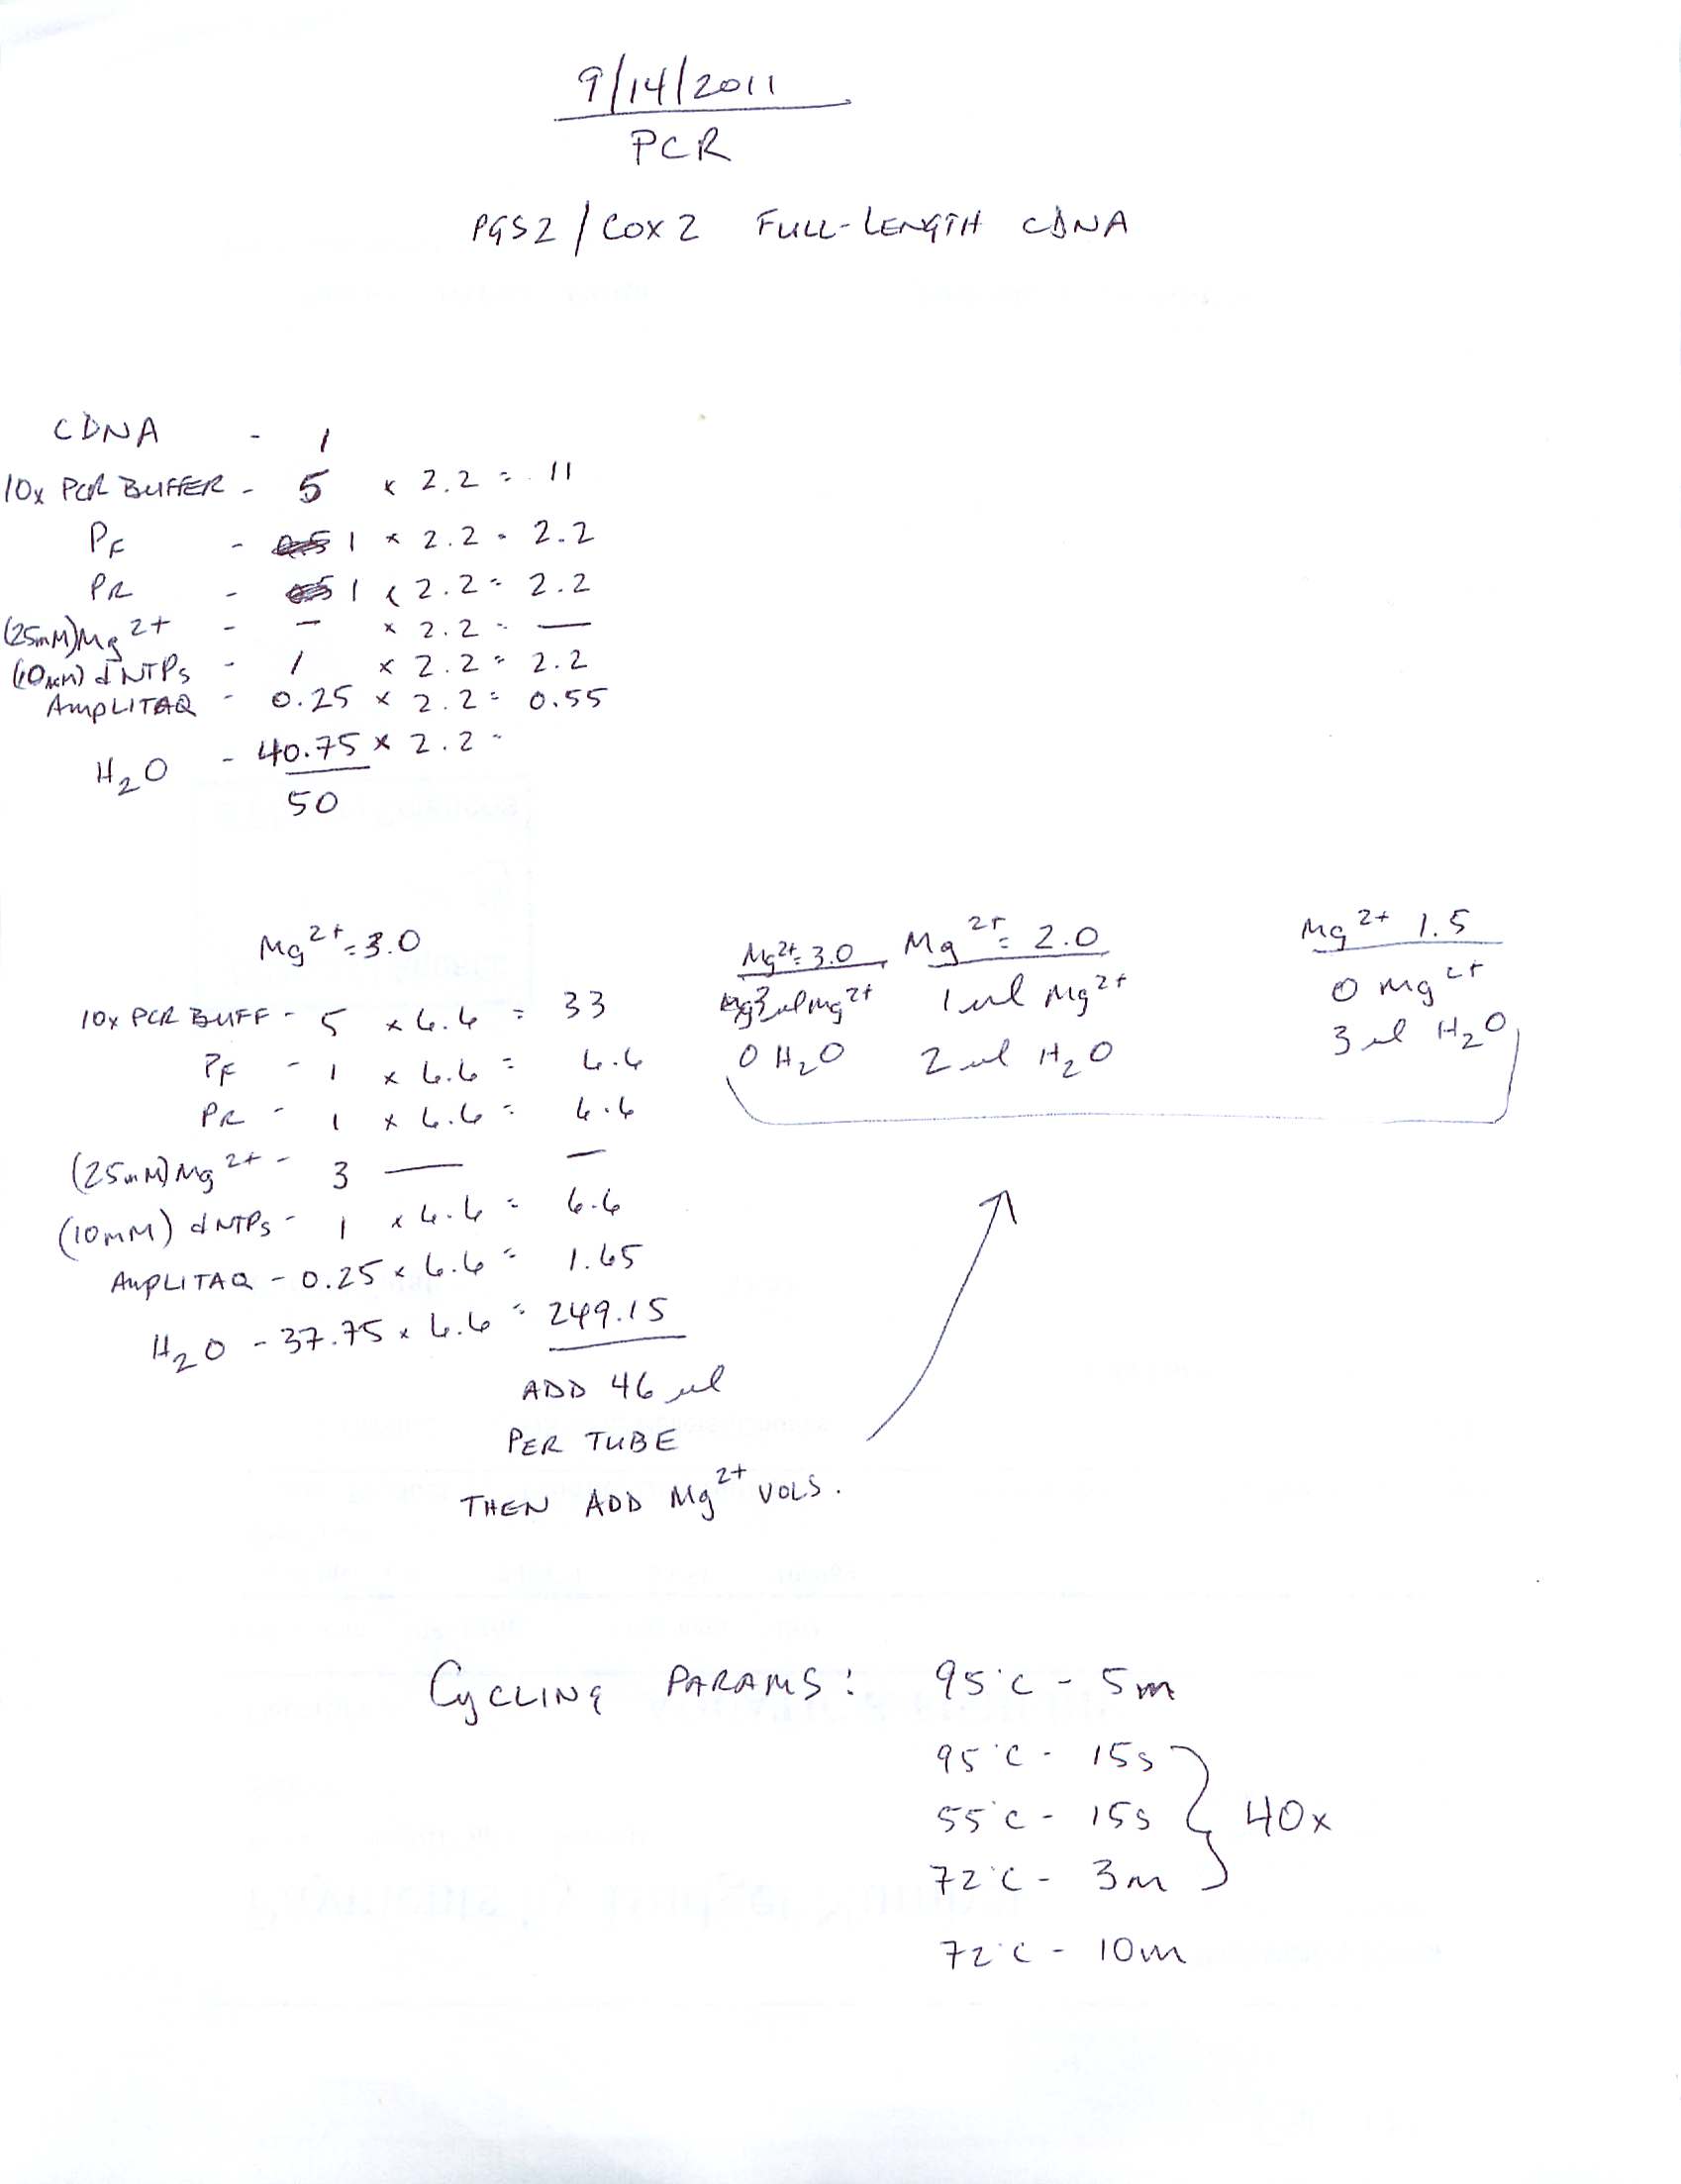 9/14/2011
PCR
PGS2 / COX2 FULL-LENGTH CDNA
CDNA - 1
10x PCR BUFFER - 5 x 2.2 = 11
PF - 1 x 2.2 = 2.2
PR - 1 x 2.2 = 2.2
(25mM) Mg2+ - — x 2.2 = —
(10mM) dNTPs - 1 x 2.2 = 2.2
AMPLITAQ - 0.25 x 2.2 = 0.55
H2O - 40.75 x 2.2 =
50
Mg2+ = 3.0
10x PCR BUFF - 5 x 6.6 = 33
PF - 1 x 6.6 = 6.6
PR - 1 x 6.6 = 6.6
(25mM) Mg2+ - 3 — —
(10mM) dNTPs - 1 x 6.6 = 6.6
AMPLITAQ - 0.25 x 6.6 = 1.65
H2O - 37.75 x 6.6 = 249.15
ADD 46 ul
PER TUBE
THEN ADD Mg2+ VOLS.
Mg2+ = 3.0
3 ul Mg2+
0 H2O
Mg2+ = 2.0
1 ul Mg2+
2 ul H2O
Mg2+ 1.5
0 Mg2+
3 ul H2O
CYCLING PARAMS: 95°C - 5m
95°C - 15s
55°C - 15s } 40x
72°C - 3m
72°C - 10m